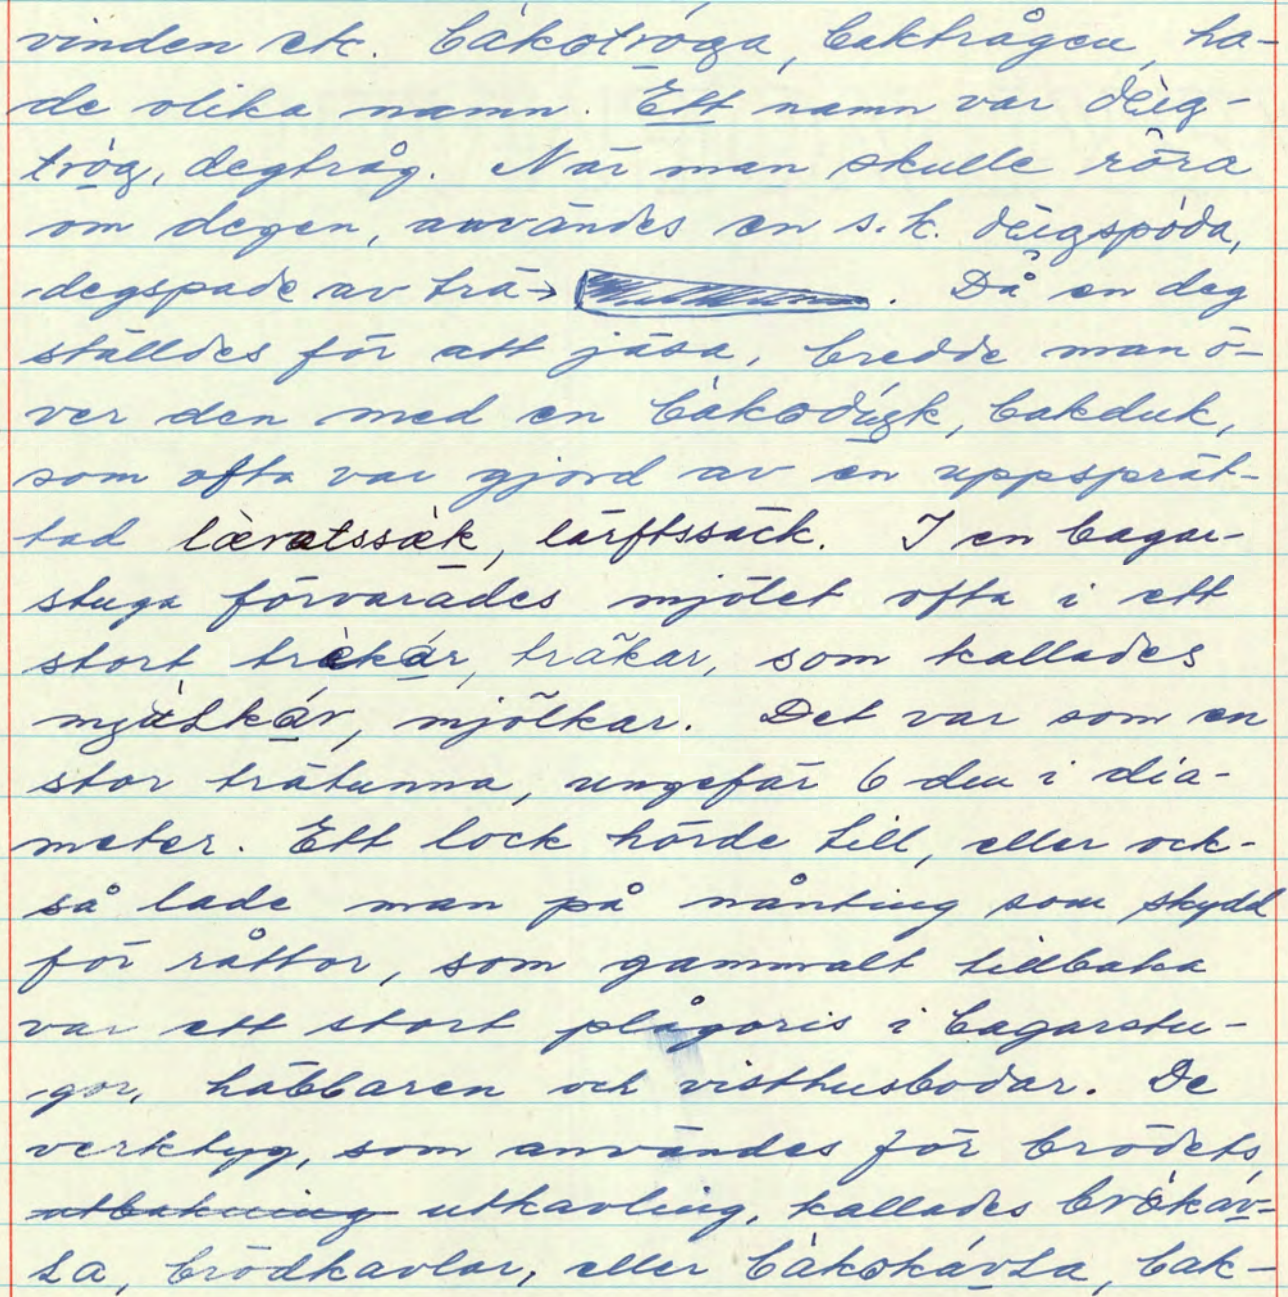 vinden etc. bàkotróga, baktrågen, ha-
de olika namn. Ett namn var dèig-
tróg, degtråg. När man skulle röra
om degen, användes en s.k. dèigspóda,
degspade av trä→ . Då en deg
ställdes för att jäsa, bredde man ö-
ver den med en bàkodúgk, bakduk,
som ofta var gjord av en uppsprät-
tad lærətssæk, lärftssäck. I en bagar-
stuga förvarades mjölet ofta i ett
stort trèkár, träkar, som kallades
mjö̀Lkár, mjölkar. Det var som en
stor trätunna, ungefär 6 dm i dia-
meter. Ett lock hörde till, eller ock-
så lade man på nånting som skydd
för råttor, som gammalt tillbaka
var ett stort plågoris i bagarstu-
gor, häbbaren och visthusbodar. De
verktyg, som användes för brödets
utbakning utkavling, kallades brö̀káv-
La, brödkavlar, eller bàkokávLa, bak-